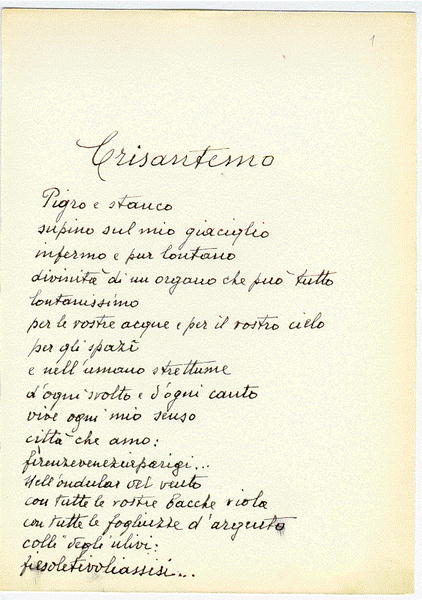 1
Crisantemo
Pigro e stanco
supino sul mio giaciglio
infermo e pur lontano
divinità di un organo che può tutto
lontanissimo
per le vostre acque e per il vostro cielo
per gli spazî
e nell'umano strettume
d'ogni svolto e d'ogni canto
vive ogni mio senso
città che amo:
firenzeveneziaparigi...
Nell'ondular del vento
con tutte le vostre bacche viola
con tutte le fogliuzze d'argento
colli degli ulivi:
fiesoletivoliassisi...